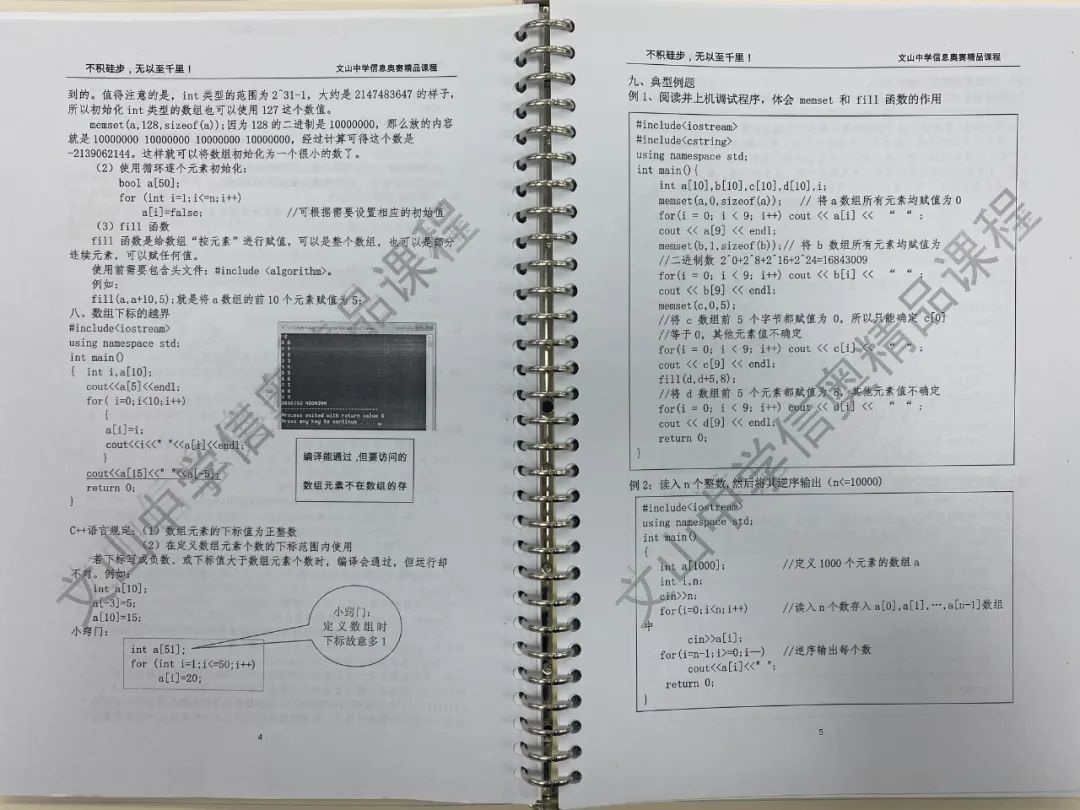 不积硅步，无以至千里！
文山中学信息奥赛精品课程
到的。值得注意的是，int 类型的范围为 2^31-1，大约是 2147483647 的样子，
所以初始化 int 类型的数组也可以使用 127 这个数值。
memset(a,128,sizeof(a));因为 128 的二进制是 10000000，那么放的内容
就是 10000000 10000000 10000000 10000000，经过计算可得这个数是
-2139062144。这样就可以将数组初始化为一个很小的数了。
（2）使用循环逐个元素初始化：
bool a[50];
for (int i=1;i<=n;i++)
a[i]=false; //可根据需要设置相应的初始值
（3）fill 函数
fill 函数是给数组“按元素”进行赋值，可以是整个数组，也可以是部分
连续元素，可以赋任何值。
使用前需要包含头文件：#include <algorithm>。
例如：
fill(a,a+10,5);就是将 a 数组的前 10 个元素赋值为 5;
八、数组下标的越界
#include<iostream>
using namespace std;
int main()
{ int i,a[10];
cout<<a[5]<<endl;
for( i=0;i<10;i++)
{
a[i]=i;
cout<<i<<" "<<a[i]<<endl;
}
cout<<a[15]<<" "<<a[-5];
return 0;
}
Process exited with return value 0
Press any key to continue . . .
编译能通过，但要访问的
数组元素不在数组的存
C++语言规定：（1）数组元素的下标值为正整数
（2）在定义数组元素个数的下标范围内使用
若下标写成负数、或下标值大于数组元素个数时，编译会通过，但运行却
不对。例如：
int a[10];
a[-3]=5;
a[10]=15;
小窍门：
int a[51];
for (int i=1;i<=50;i++)
a[i]=20;
小窍门：
定义数组时
下标故意多 1
4
文山中学信息奥赛精品课程
不积硅步，无以至千里！
文山中学信息奥赛精品课程
九、典型例题
例 1、阅读并上机调试程序，体会 memset 和 fill 函数的作用
#include<iostream>
#include<cstring>
using namespace std;
int main(){
int a[10],b[10],c[10],d[10],i;
memset(a,0,sizeof(a)); // 将 a 数组所有元素均赋值为 0
for(i = 0; i < 9; i++) cout << a[i] << “ “ ;
cout << a[9] << endl;
memset(b,1,sizeof(b));// 将 b 数组所有元素均赋值为
//二进制数 2^0+2^8+2^16+2^24=16843009
for(i = 0; i < 9; i++) cout << b[i] << “ “ ;
cout << b[9] << endl;
memset(c,0,5);
//将 c 数组前 5 个字节都赋值为 0，所以只能确定 c[0]
//等于 0，其他元素值不确定
for(i = 0; i < 9; i++) cout << c[i] << “ “ ;
cout << c[9] << endl;
fill(d,d+5,8);
//将 d 数组前 5 个元素都赋值为 8，其他元素值不确定
for(i = 0; i < 9; i++) cout << d[i] << “ “ ;
cout << d[9] << endl;
return 0;
}
例 2：读入 n 个整数,然后将其逆序输出（n<=10000）
#include<iostream>
using namespace std;
int main()
{
int a[1000]; //定义 1000 个元素的数组 a
int i,n;
cin>>n;
for(i=0;i<n;i++) //读入 n 个数存入 a[0],a[1],…,a[n-1]数组
中
cin>>a[i];
for(i=n-1;i>=0;i—) //逆序输出每个数
cout<<a[i]<<" ";
return 0;
}
5
文山中学信息奥赛精品课程